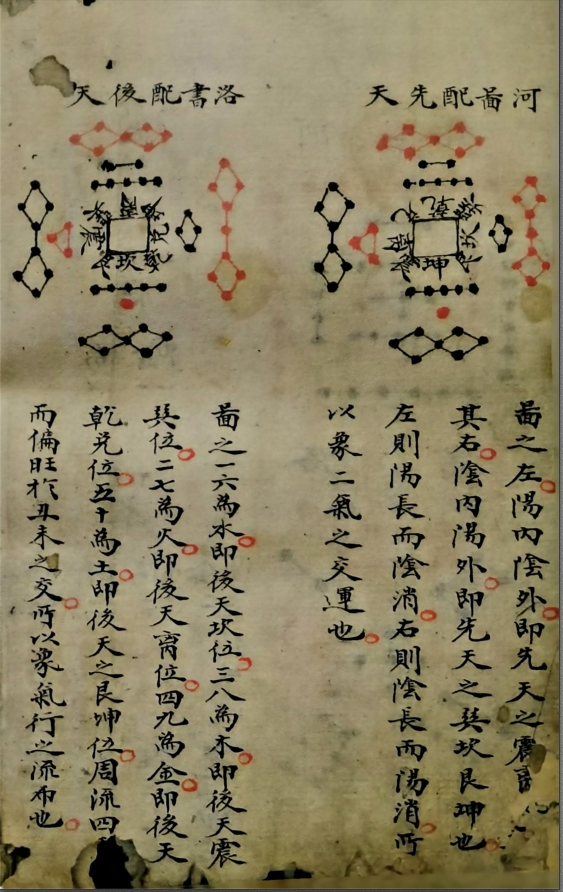 河啚配先天
乾
坎
坤
啚之左陽内陰外即先天之震
其右陰内陽外即先天之巽坎艮坤也
左則陽長而陰消右則陰長而陽消所
以象二氣之交運也
洛書配後天
震
兌
坎
啚之一六為水即後天坎位三八為木即後天震
巽位二七為火即後天离位四九為金即後天
乾兌位五十為土即後天之艮坤位周流四
而偏旺於丑未之交所以象氣行之流布也